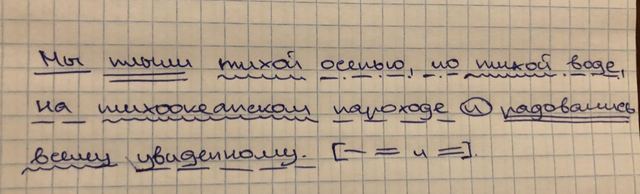 Мы плыли тихой осенью, по тихой воде,
на тихоокеанском пароходе и радовались
всему увиденному. [— = и =].